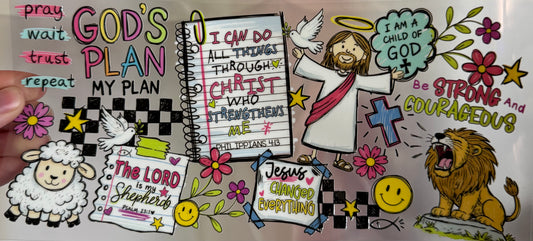 pray
wait
trust
repeat
GOD'S
PLAN
MY PLAN
I CAN DO
ALL THINGS
THROUGH
CHRIST
WHO
STRENGTHENS
ME
PHILIPPIANS 4:13
I AM A
CHILD OF
GOD
Be STRONG And
COURAGEOUS
The LORD
is my
Shepherd
PSALM 23:1
Jesus
CHANGED
EVERYTHING